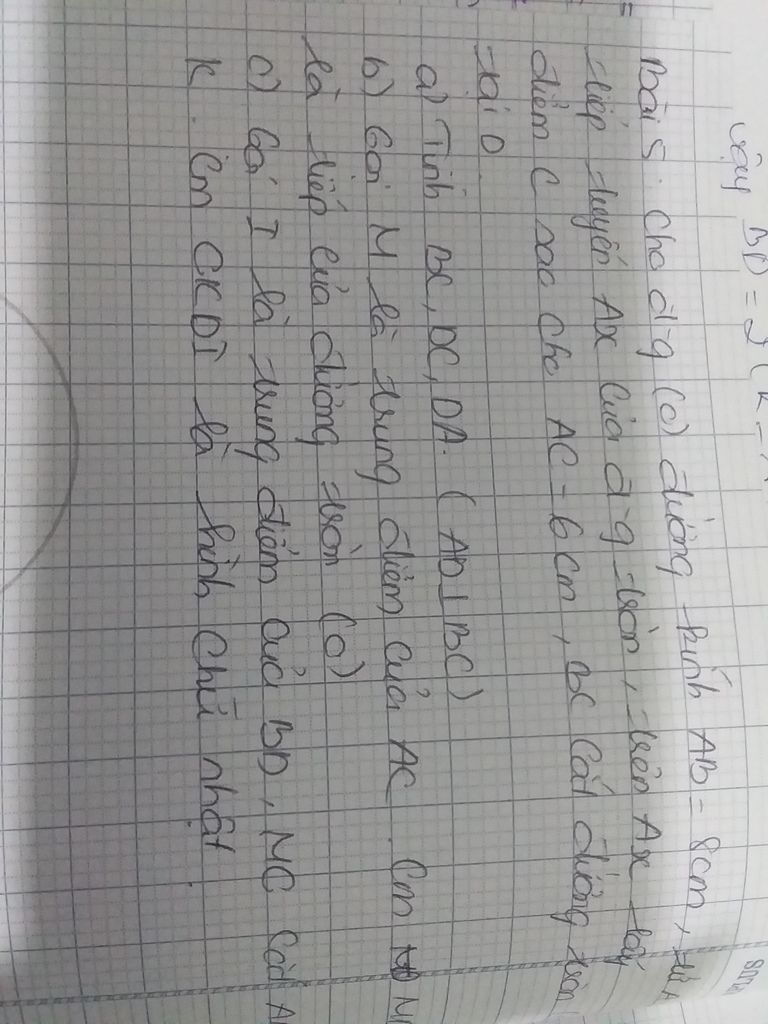 vậy BD = 2
Bài 5. Cho đ-g (O) đường kính AB = 8cm, từ A
tiếp tuyến Ax của đ-g tròn, trên Ax lấy
điểm C sao cho AC = 6cm, BC cắt đường tròn
tại D
a) Tính BC, DC, DA. (AD⊥BC)
b) Gọi M là trung điểm của AC. Cm M
là tiếp của đường tròn (O)
c) Gọi I là trung điểm của BD, MC cắt A
K. Cm CKDI là hình chữ nhật.